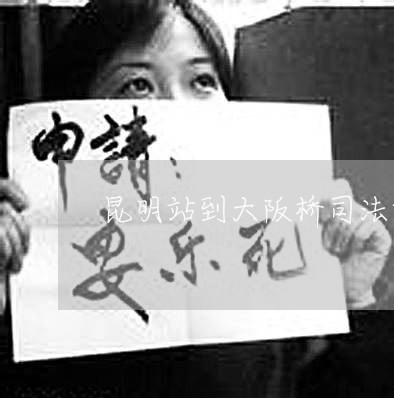 申請：
昆明站到大阪桥司法
安乐死